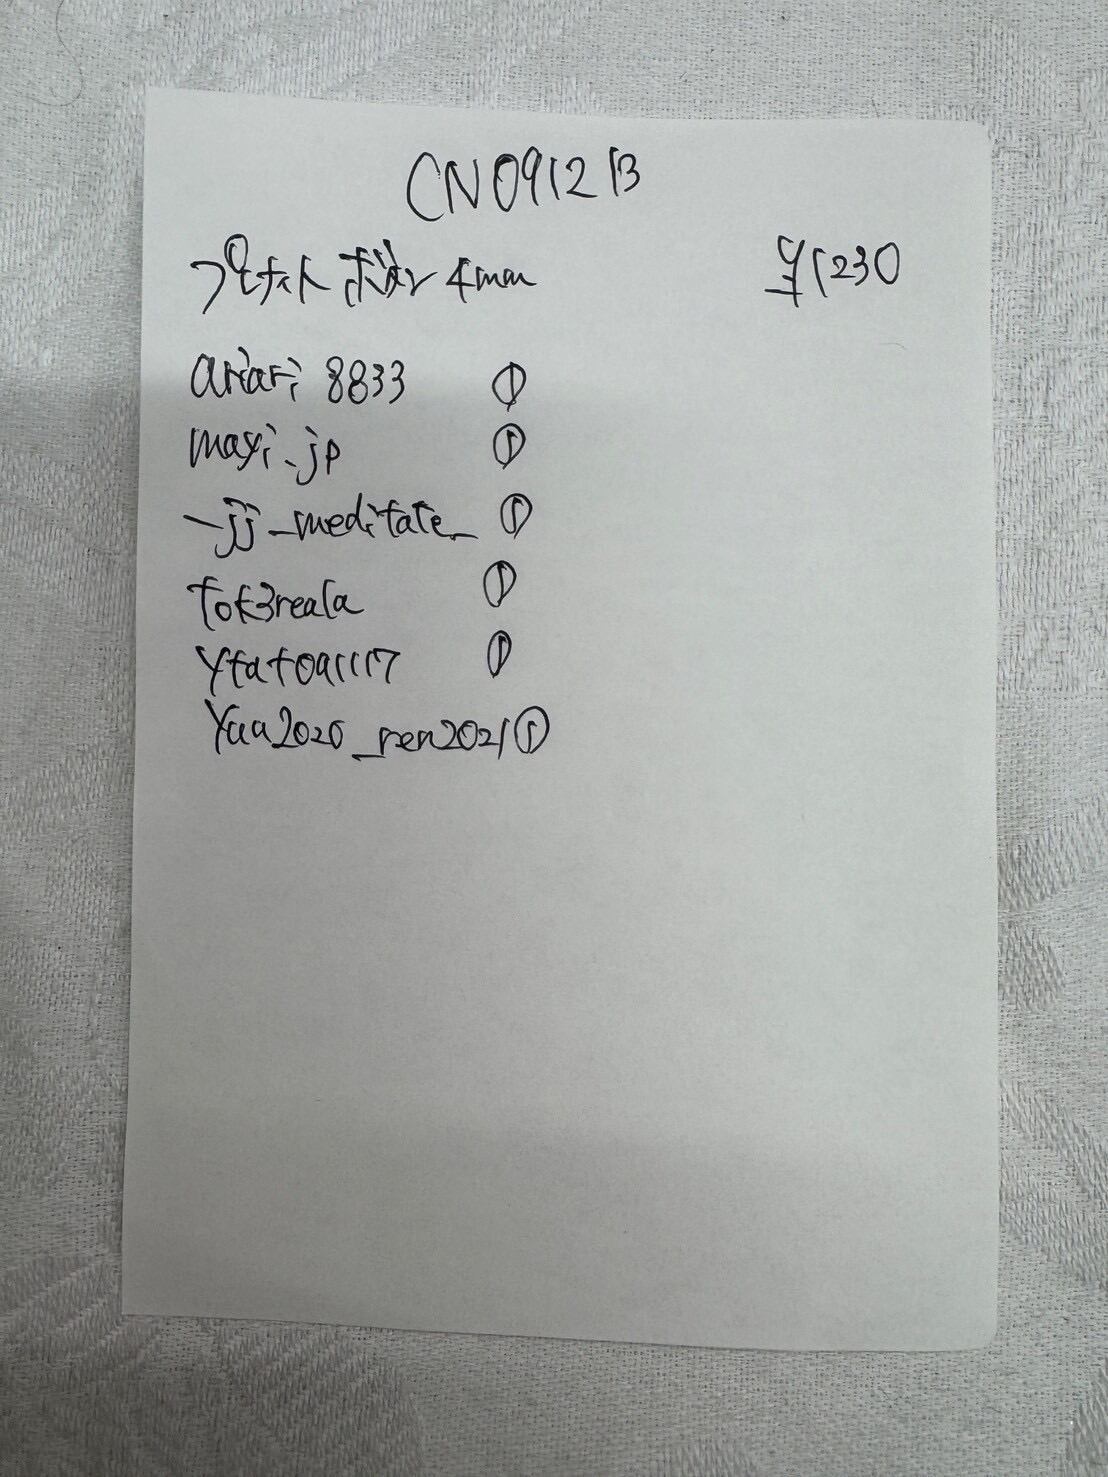 CN0912B
ボタン 4mm ¥1230
ariari8833 ①
mayi_jp ①
_jj_meditate_ ①
tok3reala ①
ytatoa1117 ①
yaa2020_ren2021 ①